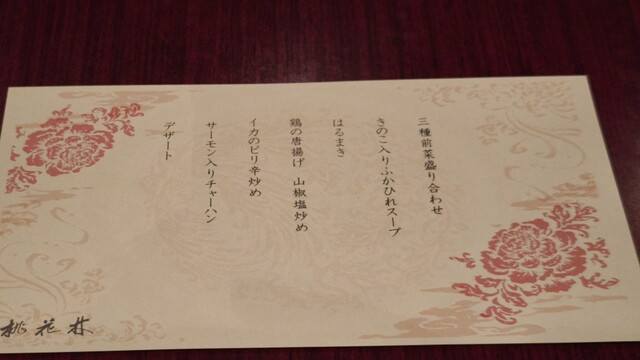 三種前菜盛り合わせ
きのこ入りふかひれスープ
はるまき
鶏の唐揚げ 山椒塩炒め
イカのピリ辛炒め
サーモン入りチャーハン
デザート
桃花林